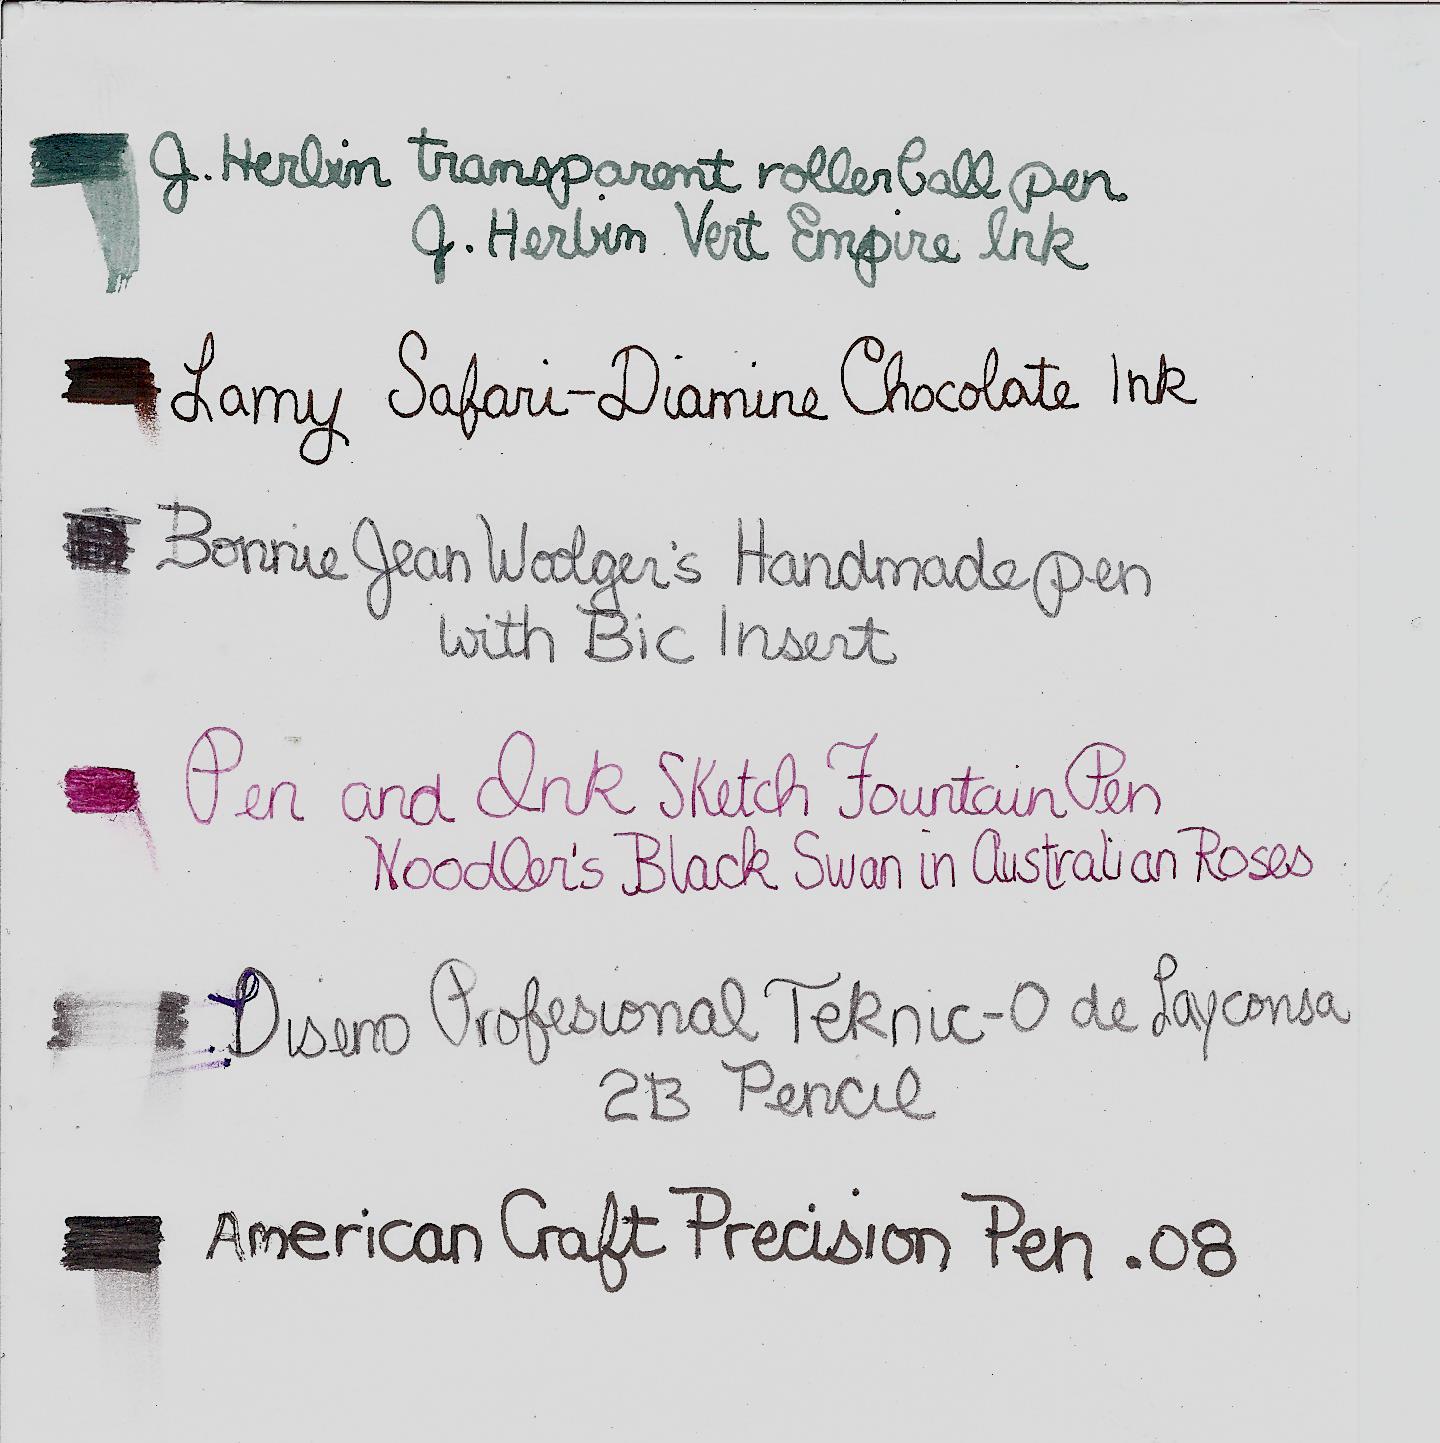 J. Herbin transparent rollerball pen
J. Herbin Vert Empire Ink
Lamy Safari-Diamine Chocolate Ink
Bonnie Jean Woolger's Handmade pen
with Bic Insert
Pen and Ink Sketch Fountain Pen
Noodler's Black Swan in Australian Roses
Diseno Profesional Teknic-O de Layconsa
2B Pencil
American Craft Precision Pen .08